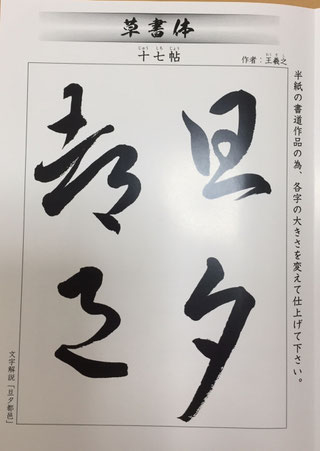 草書体
じゅう しち じょう
十七帖
おう ぎ し
作者：王羲之
半紙の書道作品の為、各字の大きさを変えて仕上げて下さい。
旦夕
都邑
文字解説『旦夕都邑』